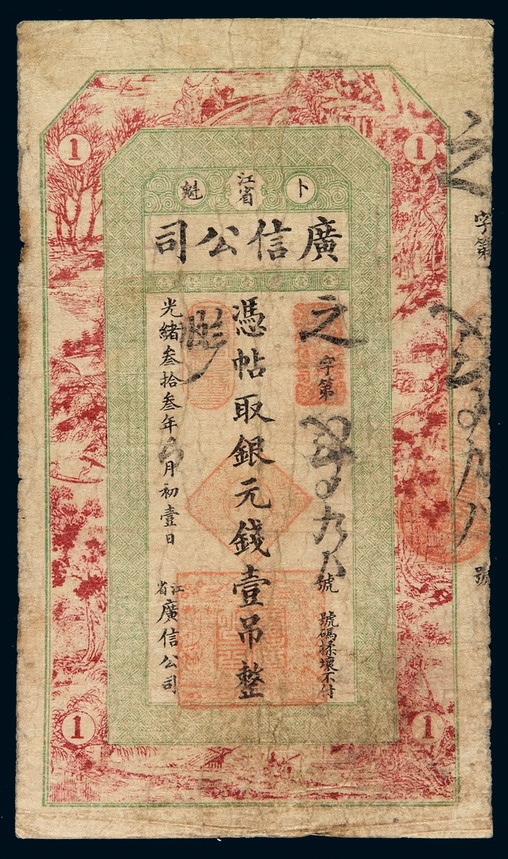 1 1
卜 江省 魁
廣信公司
之字第
九八號
號碼揉壞不付
憑帖取銀元錢壹吊整
光緒叁拾叁年六月初壹日
江省廣信公司
之
字第
九八
號
1 1